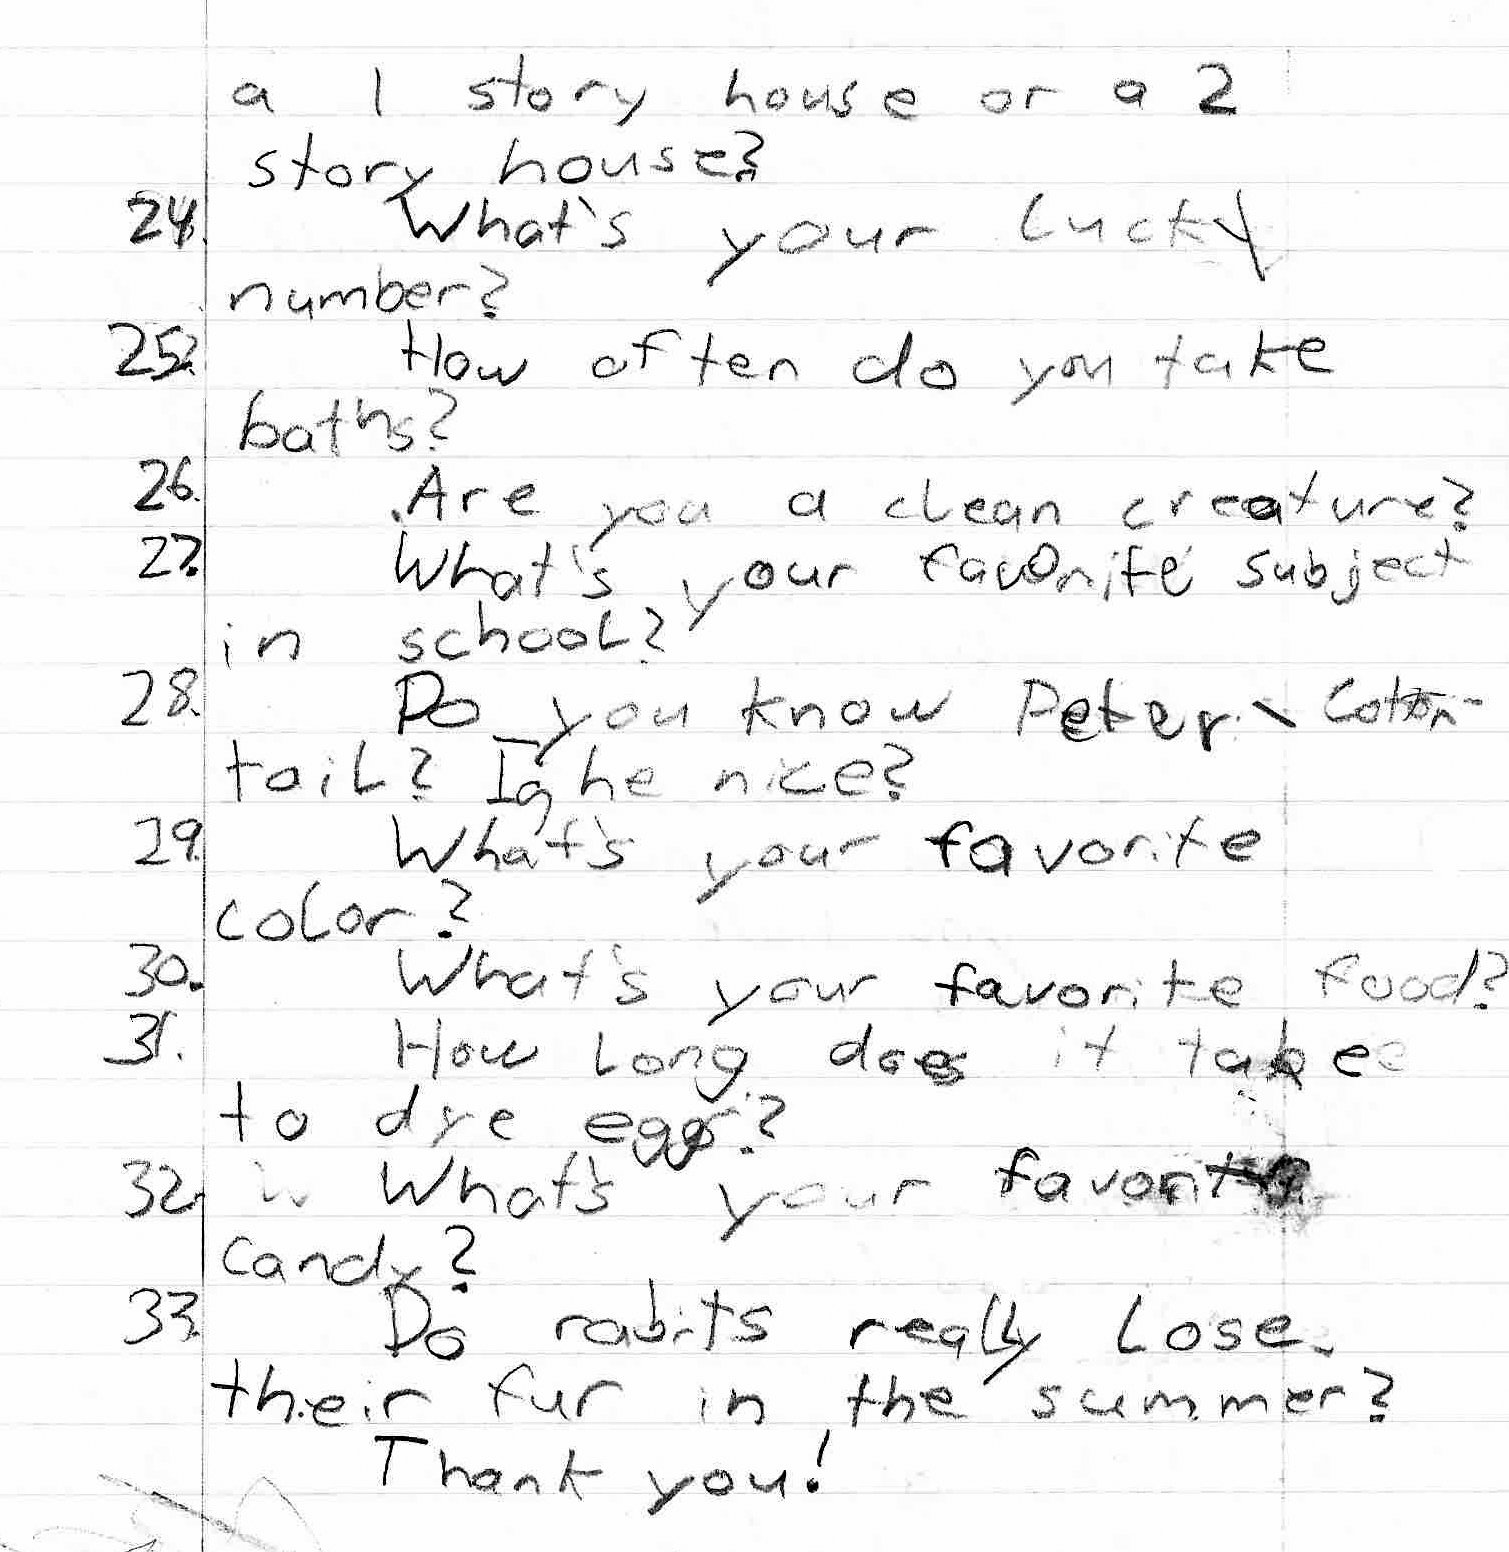 a 1 story house or a 2
story house?
24. What's your lucky
number?
25. How often do you take
baths?
26. Are you a clean creature?
27. What's your favorite subject
in school?
28. Do you know Peter Cotton-
tail? Is he nice?
29. What's your favorite
color?
30. What's your favorite food?
31. How long does it take
to dye eggs?
32. What's your favorite
candy?
33. Do rabits really lose
their fur in the summer?
Thank you!